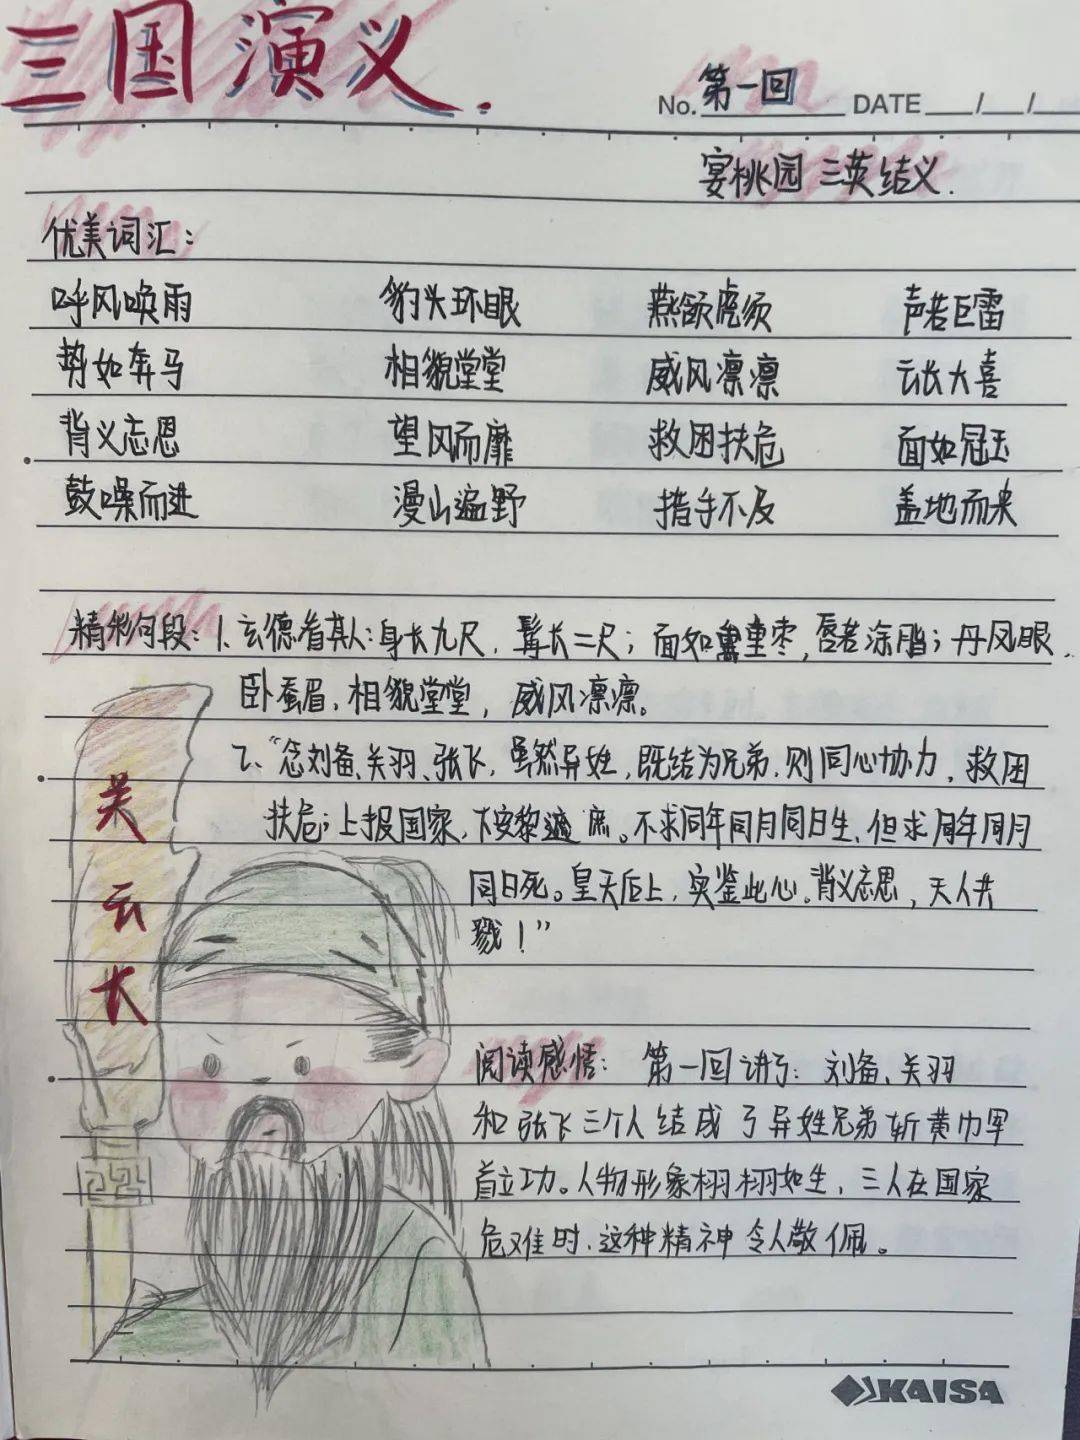 三国演义.
No. 第一回 DATE / /
宴桃园 三英结义.
优美词汇:
呼风唤雨 豹头环眼 燕颔虎须 声若巨雷
势如奔马 相貌堂堂 威风凛凛 云长大喜
背义忘恩 望风而靡 救困扶危 面如冠玉
鼓噪而进 漫山遍野 措手不及 盖地而来
精彩句段: 1. 玄德看其人: 身长九尺, 髯长二尺; 面如重枣, 唇若涂脂; 丹凤眼,
卧蚕眉, 相貌堂堂, 威风凛凛。
2、“念刘备、关羽、张飞, 虽然异姓, 既结为兄弟, 则同心协力, 救困
扶危; 上报国家, 下安黎庶。不求同年同月同日生, 但求同年同月
同日死。皇天后土, 实鉴此心。背义忘恩, 天人共
戮!”
关
云
长
阅读感悟: 第一回讲了: 刘备、关羽
和张飞三个人结成了异姓兄弟斩黄巾军
首立功。人物形象栩栩如生, 三人在国家
危难时, 这种精神令人敬佩。
KAISA